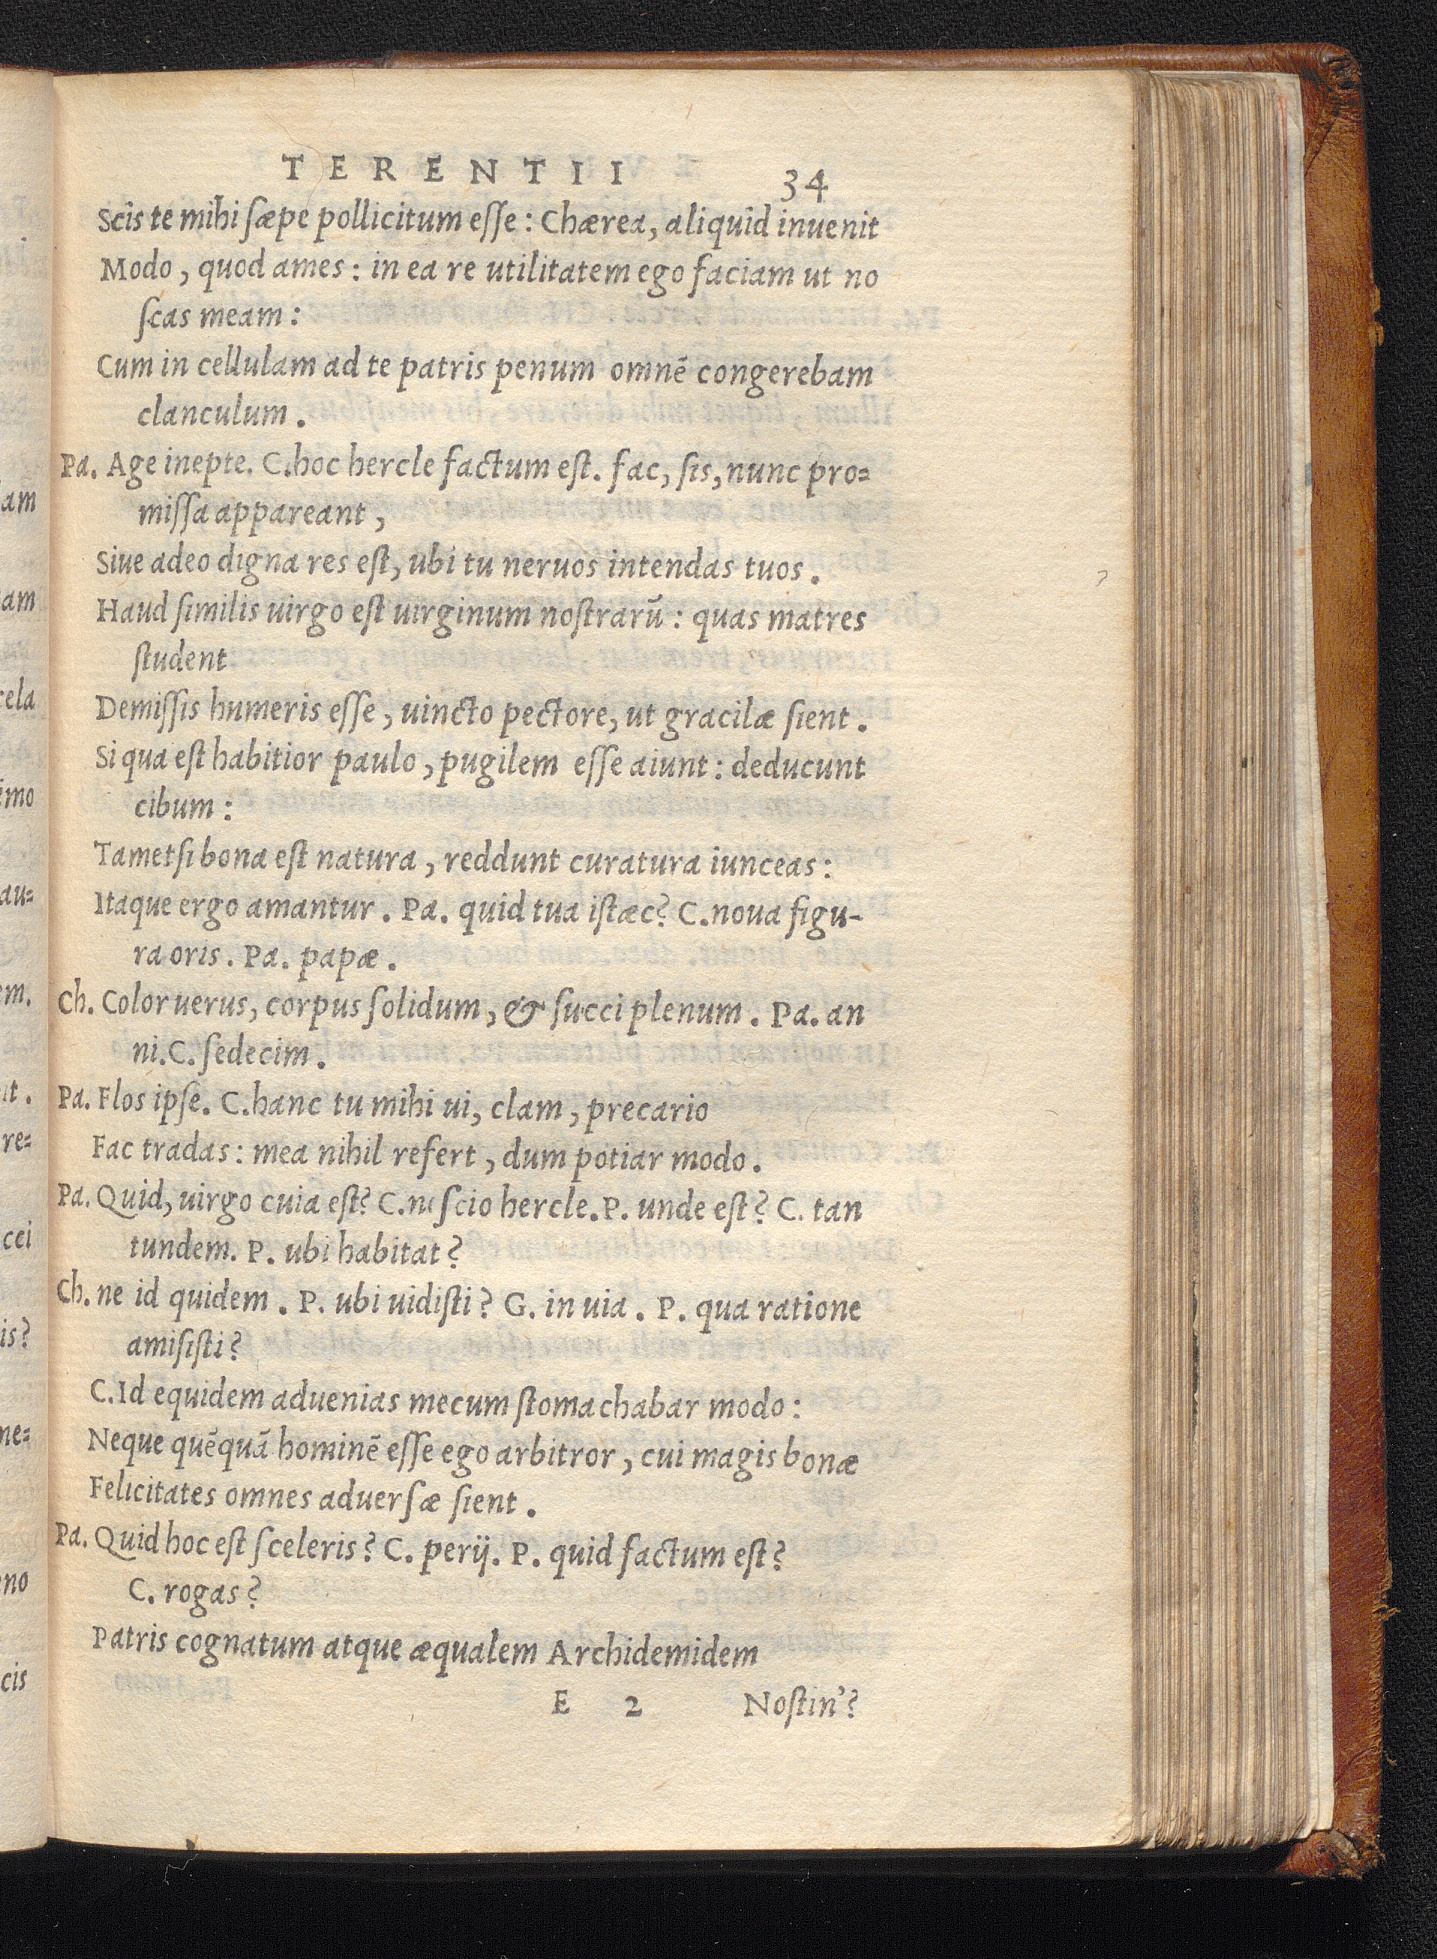 TERENTII 34
Scis te mihi ſæpe pollicitum eſſe : Chærea, aliquid inuenit
Modo, quod ames : in ea re utilitatem ego faciam ut no
ſcas meam :
Cum in cellulam ad te patris penum omnē congerebam
clanculum .
Pa. Age inepte. C.hoc hercle factum eſt. fac, ſis, nunc pro=
miſſa appareant ,
Siue adeo digna res eſt, ubi tu neruos intendas tuos .
Haud ſimilis uirgo eſt uirginum noſtrarū : quas matres
ſtudent
Demiſſis humeris eſſe , uincto pectore, ut gracilæ ſient .
Si qua eſt habitior paulo , pugilem eſſe aiunt : deducunt
cibum :
Tametſi bona eſt natura , reddunt curatura iunceas :
Itaque ergo amantur . Pa. quid tua iſtæc? C.noua figu-
ra oris . Pa. papæ .
Ch. Color uerus, corpus ſolidum , & ſucci plenum . Pa. an
ni.C. ſedecim .
Pa. Flos ipſe. C.hanc tu mihi ui, clam , precario
Fac tradas : mea nihil refert , dum potiar modo .
Pa. Quid, uirgo cuia eſt? C.neſcio hercle.P. unde eſt ? C. tan
tundem. P. ubi habitat ?
Ch. ne id quidem . P. ubi uidiſti ? G. in uia . P. qua ratione
amiſiſti ?
C.Id equidem aduenias mecum ſtomachabar modo :
Neque quēquā hominē eſſe ego arbitror , cui magis bonæ
Felicitates omnes aduerſæ ſient .
Pa. Quid hoc eſt ſceleris ? C. perij. P. quid factum eſt ?
C. rogas ?
Patris cognatum atque æqualem Archidemidem
E 2 Noſtin'?